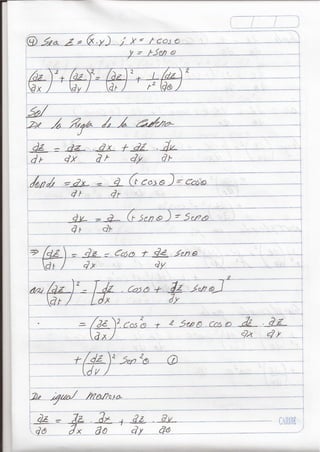 ④ Sea z = (x,y) ; x = r cos θ
y = r sen θ
(∂z/∂x)² + (∂z/∂y)² = (∂z/∂r)² + 1/r² (∂z/∂θ)²
Sol
De la Regla de la Cadena
∂z/∂r = ∂z/∂x · ∂x/∂r + ∂z/∂y · ∂y/∂r
donde = ∂x/∂r = ∂/∂r (r cos θ) = cos θ
∂y/∂r = ∂/∂r (r sen θ) = sen θ
⇒ (∂z/∂r) = ∂z/∂x = cos θ + ∂z/∂y sen θ
(∂z/∂r)² = [∂z/∂x · cos θ + ∂z/∂y sen θ]²
= (∂z/∂x)² cos² θ + 2 sen θ cos θ ∂z/∂x · ∂z/∂y
+ (∂z/∂y)² sen² θ ①
De igual manera
∂z/∂θ = ∂z/∂x · ∂x/∂θ + ∂z/∂y · ∂y/∂θ